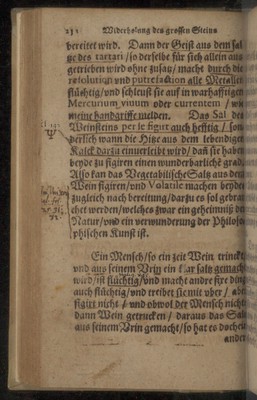 232 Widerholung des grossen Steins
bereitet wird. Dann der Geist aus dem Sal
tze des tartari / so derselbe für sich allein aus
getrieben wird ohne zusatz / macht durch die
resolution und putrefaction alle Metallen
flüchtig / und schleust sie auf in warhafftigen
Mercurium vivum oder currentem / wie
meine handgriffe melden. Das Sal des
Weinsteins per se figirt auch hefftig / son
derlich wann die Hitze aus dem lebendigen
Kalck darzu einverleibt wird / dañ sie haben
beyde zu figiren einen wunderbarlichē grad.
Also kan das Vegetabilische Saltz aus dem
Wein figiren / und Volatile machen beydes
zugleich nach bereitung / darzu es sol gebrau
chet werden / welches zwar ein geheimniß der
Natur / und ein verwunderung der Philoso
phischen Kunst ist.
Ein Mensch / so ein zeit Wein trincket
und aus seinem Vrin ein klar saltz gemacht
wird / ist flüchtig / und macht andre fixe ding
auch flüchtig / und treibet sie mit über / aber
figirt nicht / und obwol der Mensch nichts
dann Wein getruncken / daraus das Saltz
aus seinem Vrin gemacht / so hat es doch ein
ander